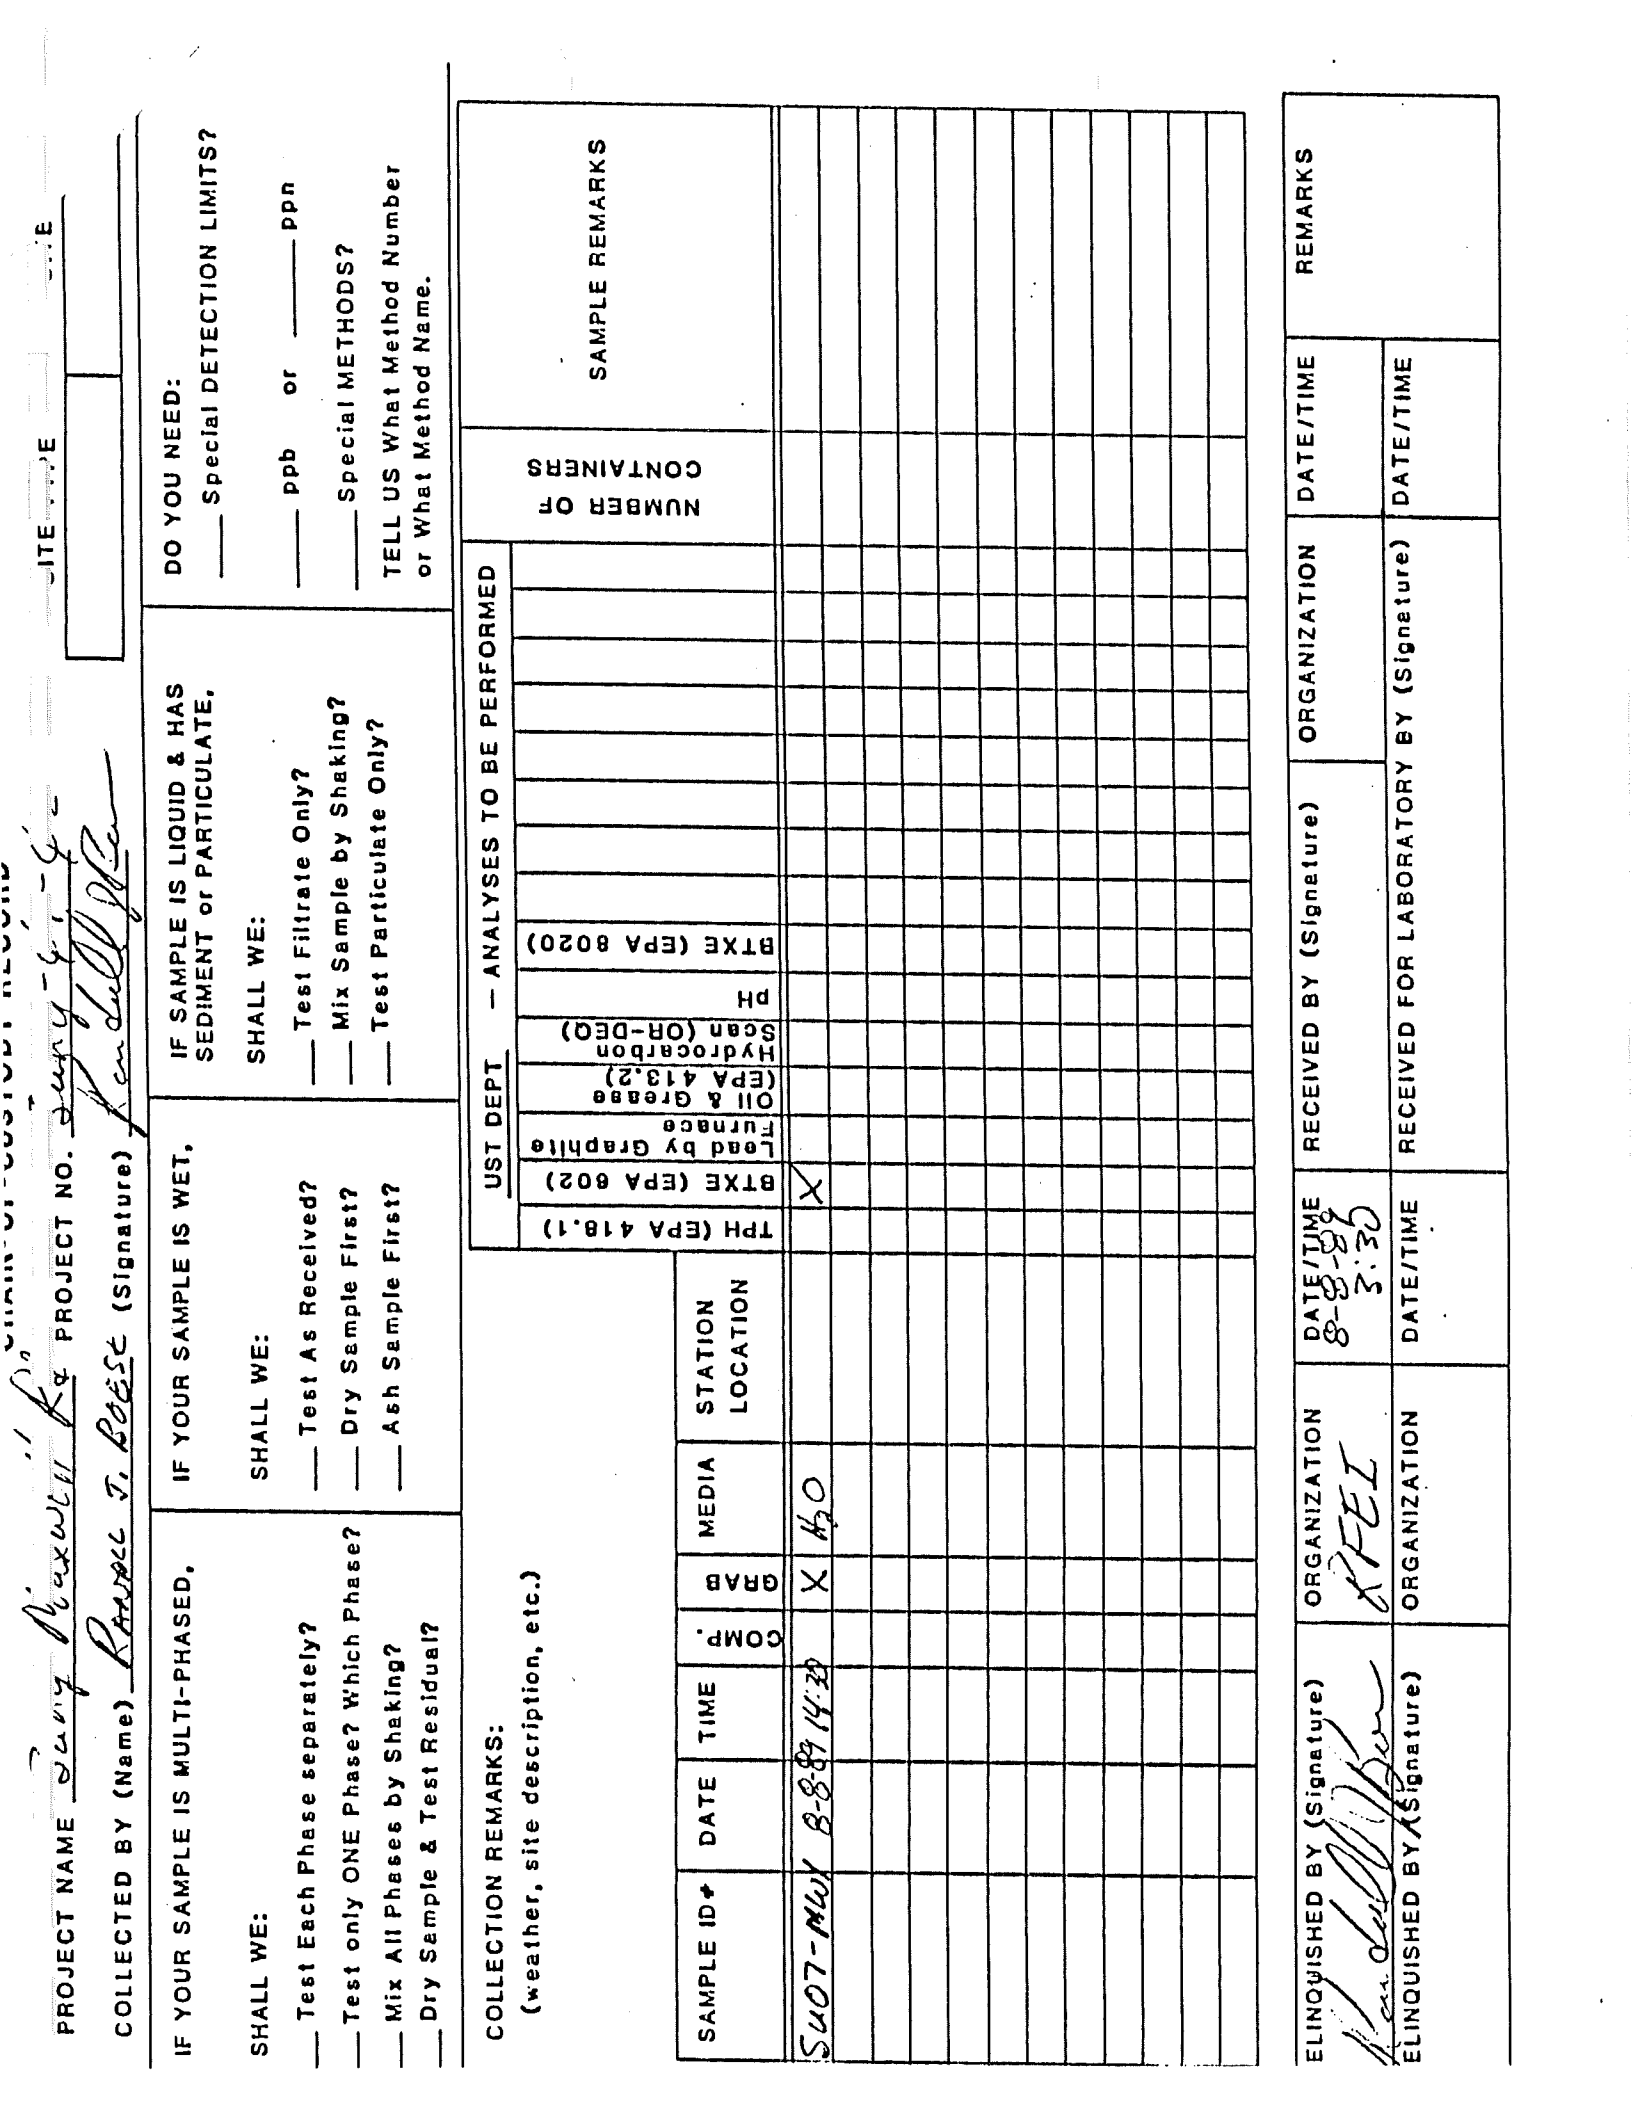 CHAIN-OF-CUSTODY RECORD
PROJECT NAME Maxwell Rd PROJECT NO.
COLLECTED BY (Name) RANDALL J. BOESE (Signature)
IF YOUR SAMPLE IS MULTI-PHASED,
SHALL WE:
Test Each Phase separately?
Test only ONE Phase? Which Phase?
Mix All Phases by Shaking?
Dry Sample & Test Residual?
IF YOUR SAMPLE IS WET,
SHALL WE:
Test As Received?
Dry Sample First?
Ash Sample First?
IF SAMPLE IS LIQUID & HAS
SEDIMENT or PARTICULATE,
SHALL WE:
Test Filtrate Only?
Mix Sample by Shaking?
Test Particulate Only?
DO YOU NEED:
Special DETECTION LIMITS?
ppb or ppn
Special METHODS?
TELL US What Method Number
or What Method Name.
COLLECTION REMARKS:
(weather, site description, etc.)
UST DEPT — ANALYSES TO BE PERFORMED
SAMPLE ID#
DATE
TIME
COMP.
GRAB
MEDIA
STATION
LOCATION
TPH (EPA 418.1)
BTXE (EPA 602)
Lead by Graphite
Turnace
Oil & Grease
(EPA 413.2)
Hydrocarbon
Scan (OR-DEQ)
pH
BTXE (EPA 8020)
NUMBER OF
CONTAINERS
SAMPLE REMARKS
SU07-MW1 8-8-89 14:30 X H2O X
ELINQUISHED BY (Signature) ORGANIZATION DATE/TIME RECEIVED BY (Signature) ORGANIZATION DATE/TIME REMARKS
KFEI 8-8-89
3:30
ELINQUISHED BY (Signature) ORGANIZATION DATE/TIME RECEIVED FOR LABORATORY BY (Signature) DATE/TIME